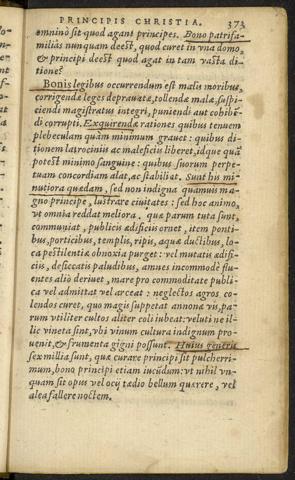 PRINCIPIS CHRISTIA. 373
omnino sit quod agant principes. Bono patrifa-
milias nunquam deest, quod curet in vna domo,
& principi deest quod agat in tam vasta di-
tione?
Bonis legibus occurrendum est malis moribus,
corrigendæ leges deprauatæ, tollendæ malæ, suspi-
ciendi magistratus integri, puniendi aut cohibẽ-
di corrupti. Exquirendæ rationes quibus tenuem
plebeculam quàm minimum grauet: quibus di-
tionem latrociniis ac maleficiis liberet, idque quã
potest minimo sanguine: quibus suorum perpe-
tuam concordiam alat, ac stabiliat. Sunt his mi-
nutiora quædam, sed non indigna quamuis ma-
gno principe, lustrare ciuitates: sed hoc animo,
vt omnia reddat meliora. quæ parum tuta sunt,
communiat, publicis ædificiis ornet, item ponti-
bus, porticibus, templis, ripis, aquæ ductibus, lo-
ca pestilentiæ obnoxia purget: vel mutatis ædifi-
ciis, desiccatis paludibus, amnes incommodè flu-
entes aliò deriuet, mare pro commoditate publi-
ca vel admittat vel arceat: neglectos agros co-
lendos curet, quo magis suppetat annona vis, pa-
rum vtiliter cultos aliter coli iubeat: veluti ne il-
lic vineta sint, vbi vinum cultura indignum pro-
uenit, & frumenta gigni possunt. Huius generis
sex millia sunt, quæ curare principi sit pulcherri-
mum, bono principi etiam iucũdum: vt nihil vn-
quam sit opus vel ocij tædio bellum quærere, vel
alea fallere noctem.